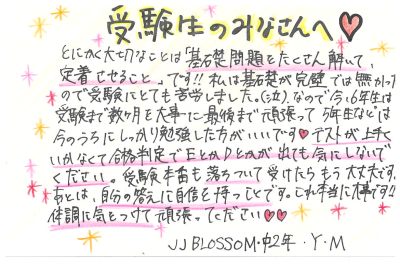 受験生のみなさんへ♡
とにかく大切なことは「基礎問題をたくさん解いて、
定着させること」です!! 私は基石楚が完璧では無かった
ので受験にとても苦労しました。(泣)なので今、6年生は
受験まで数ヶ月を大事に最後まで頑張って 5年生などは
今のうちにしっかり勉強した方がいいです♡テストが上手く
いかなくて合格判定でEとかDとかが出ても気にしないで
ください。受験本番も落ちついて受けたらもう大丈夫です。
あとは、自分の答えに自信を持つことです。これ本当に大事です!!
体調に気をつけて頑張ってください♡♡
JJ BLOSSOM・中2年・Y・M